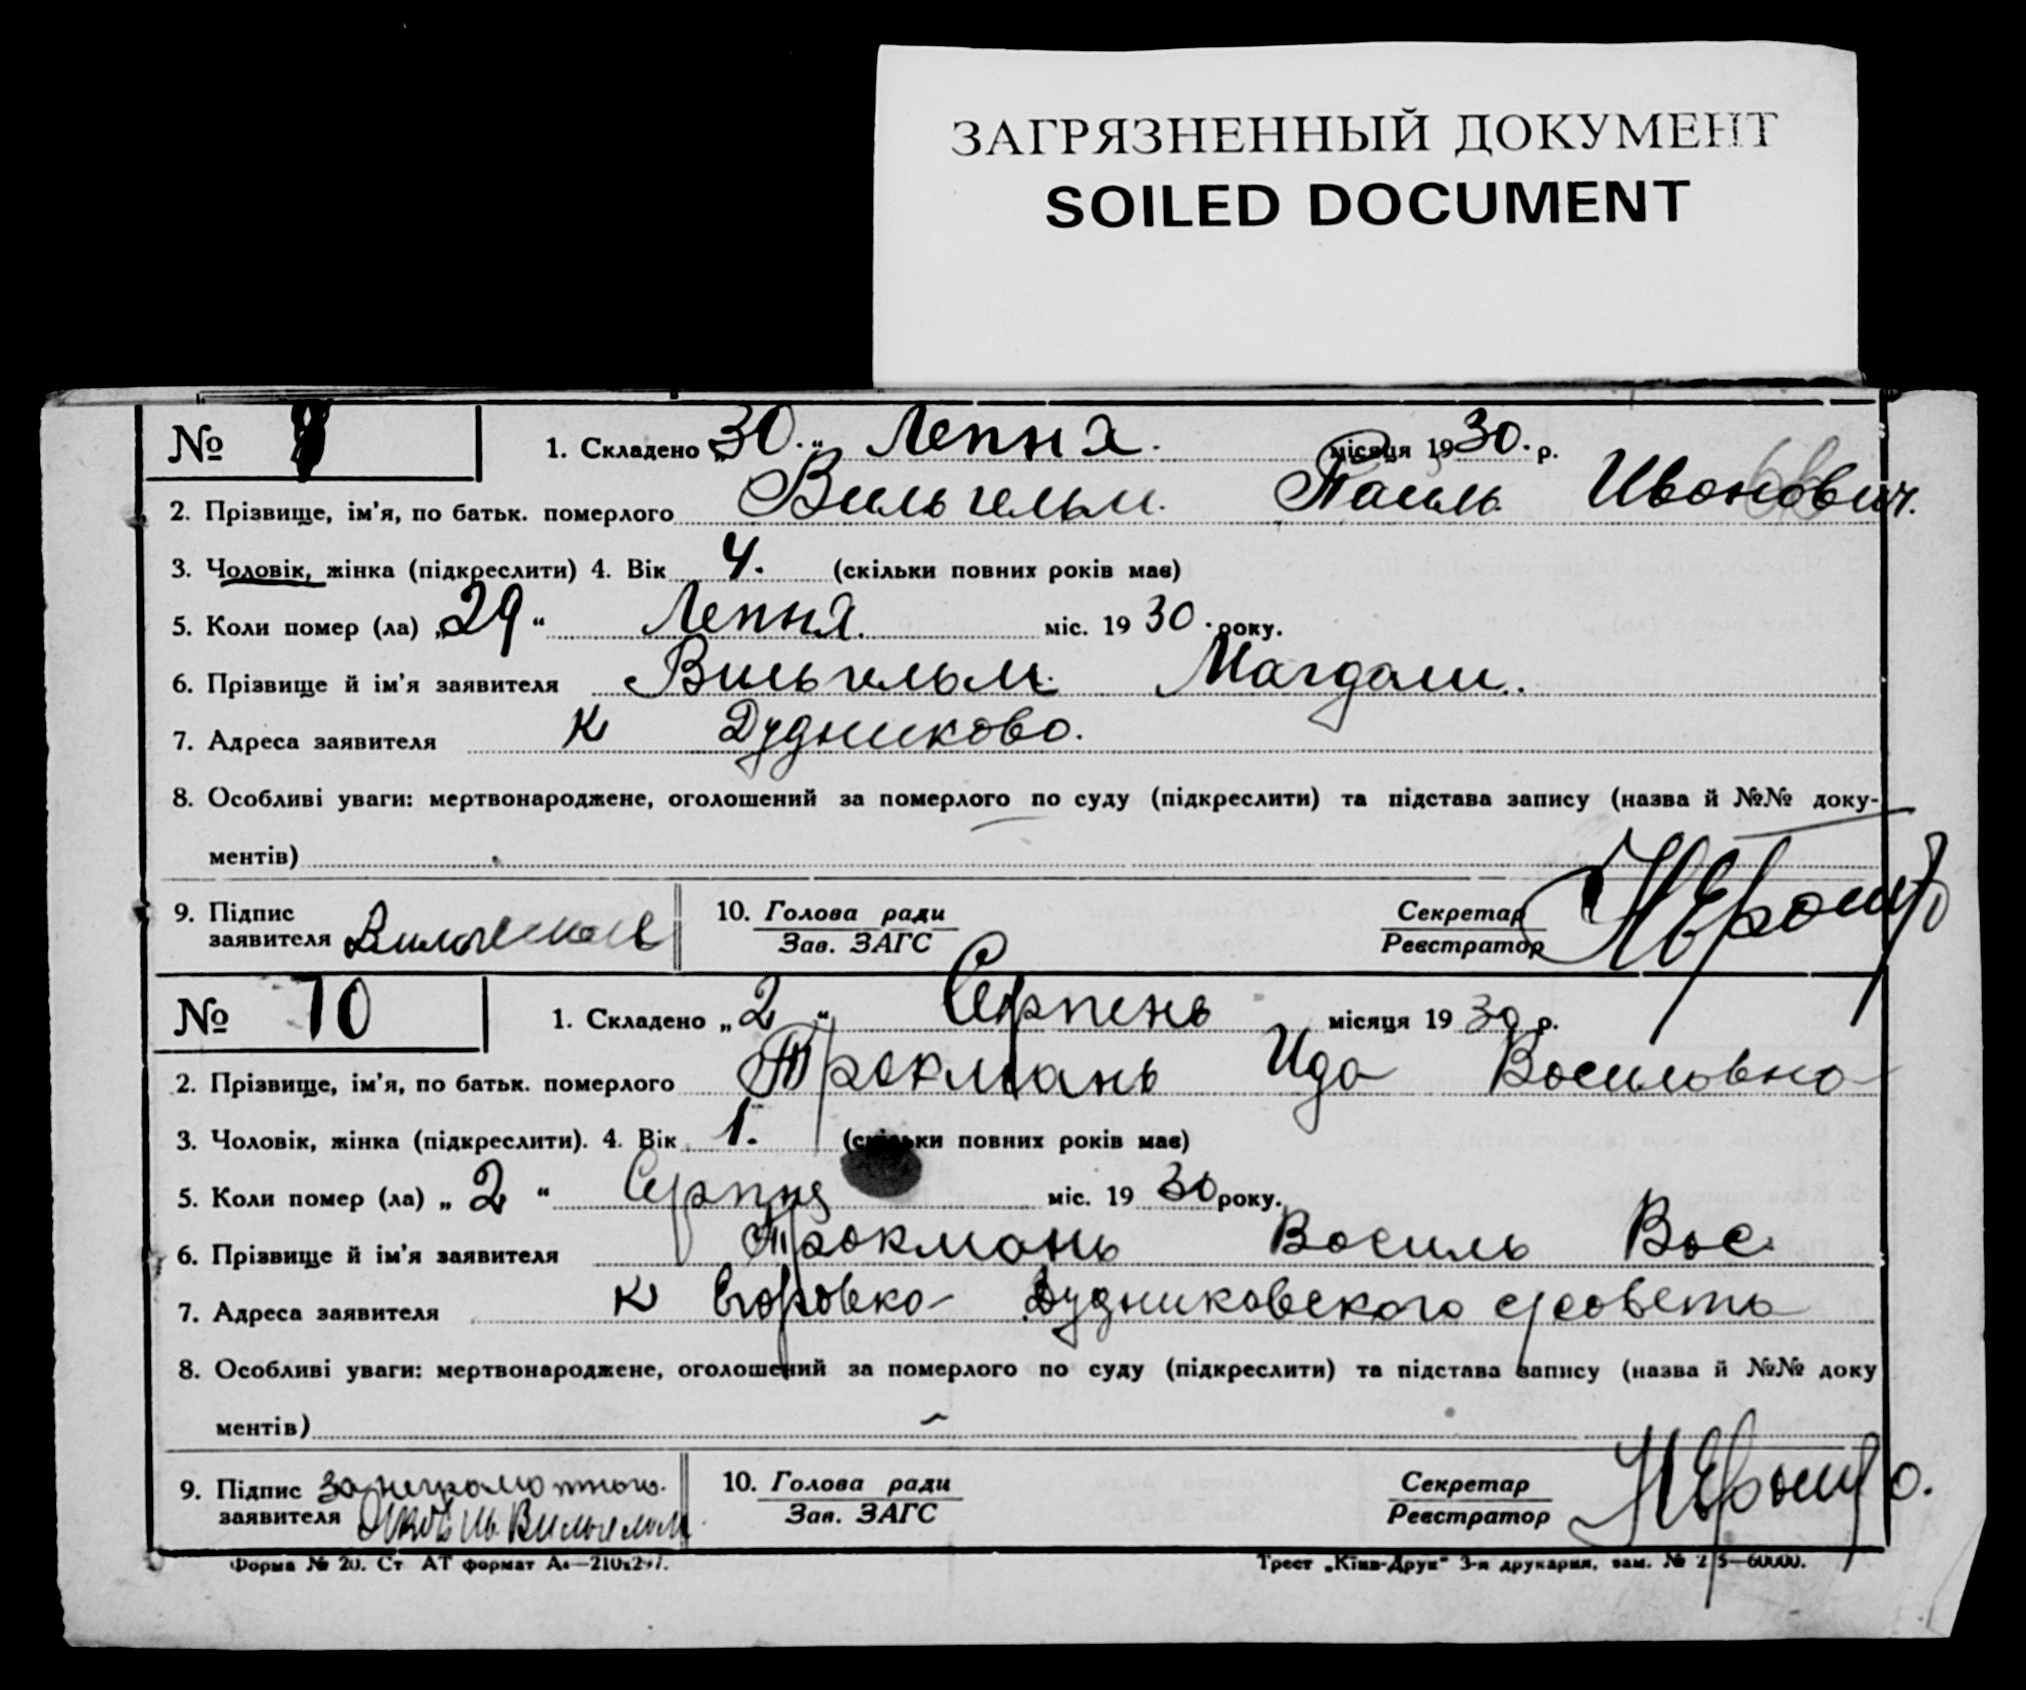 ЗАГРЯЗНЕННЫЙ ДОКУМЕНТ
SOILED DOCUMENT
№
1. Складено „30.“ Лепня. місяця 1930. р.
2. Прізвище, ім’я, по батьк. померлого Вильгельм. Иванович.
3. Чоловік, жінка (підкреслити) 4. Вік 4. (скільки повних років має)
5. Коли помер (ла) „29“ Лепня. міс. 1930. року.
6. Прізвище й ім’я заявителя Вильгельм. Магдали.
7. Адреса заявителя К Дудниково.
8. Особливі уваги: мертвонароджене, оголошений за померлого по суду (підкреслити) та підстава запису (назва й №№ доку-
ментів)
9. Підпис заявителя Вильгельм
10. Голова ради
Зав. ЗАГС
Секретар
Реєстратор
№ 10
1. Складено „2“ Серпень місяця 1930 р.
2. Прізвище, ім’я, по батьк. померлого Трокмань Ида Василовна
3. Чоловік, жінка (підкреслити). 4. Вік 1. (скільки повних років має)
5. Коли помер (ла) „2“ Серпня міс. 1930 року.
6. Прізвище й ім’я заявителя Трокмань Василь Вас.
7. Адреса заявителя К Егоровка Дудниковского с/совета
8. Особливі уваги: мертвонароджене, оголошений за померлого по суду (підкреслити) та підстава запису (назва й №№ доку
ментів)
9. Підпис заявителя за неграмотного. Вильгельм
10. Голова ради
Зав. ЗАГС
Секретар
Реєстратор
Форма № 20. Ст АТ формат А4—210х297.
Трест „Київ-Друк“ 3-я друкарня, зам. №